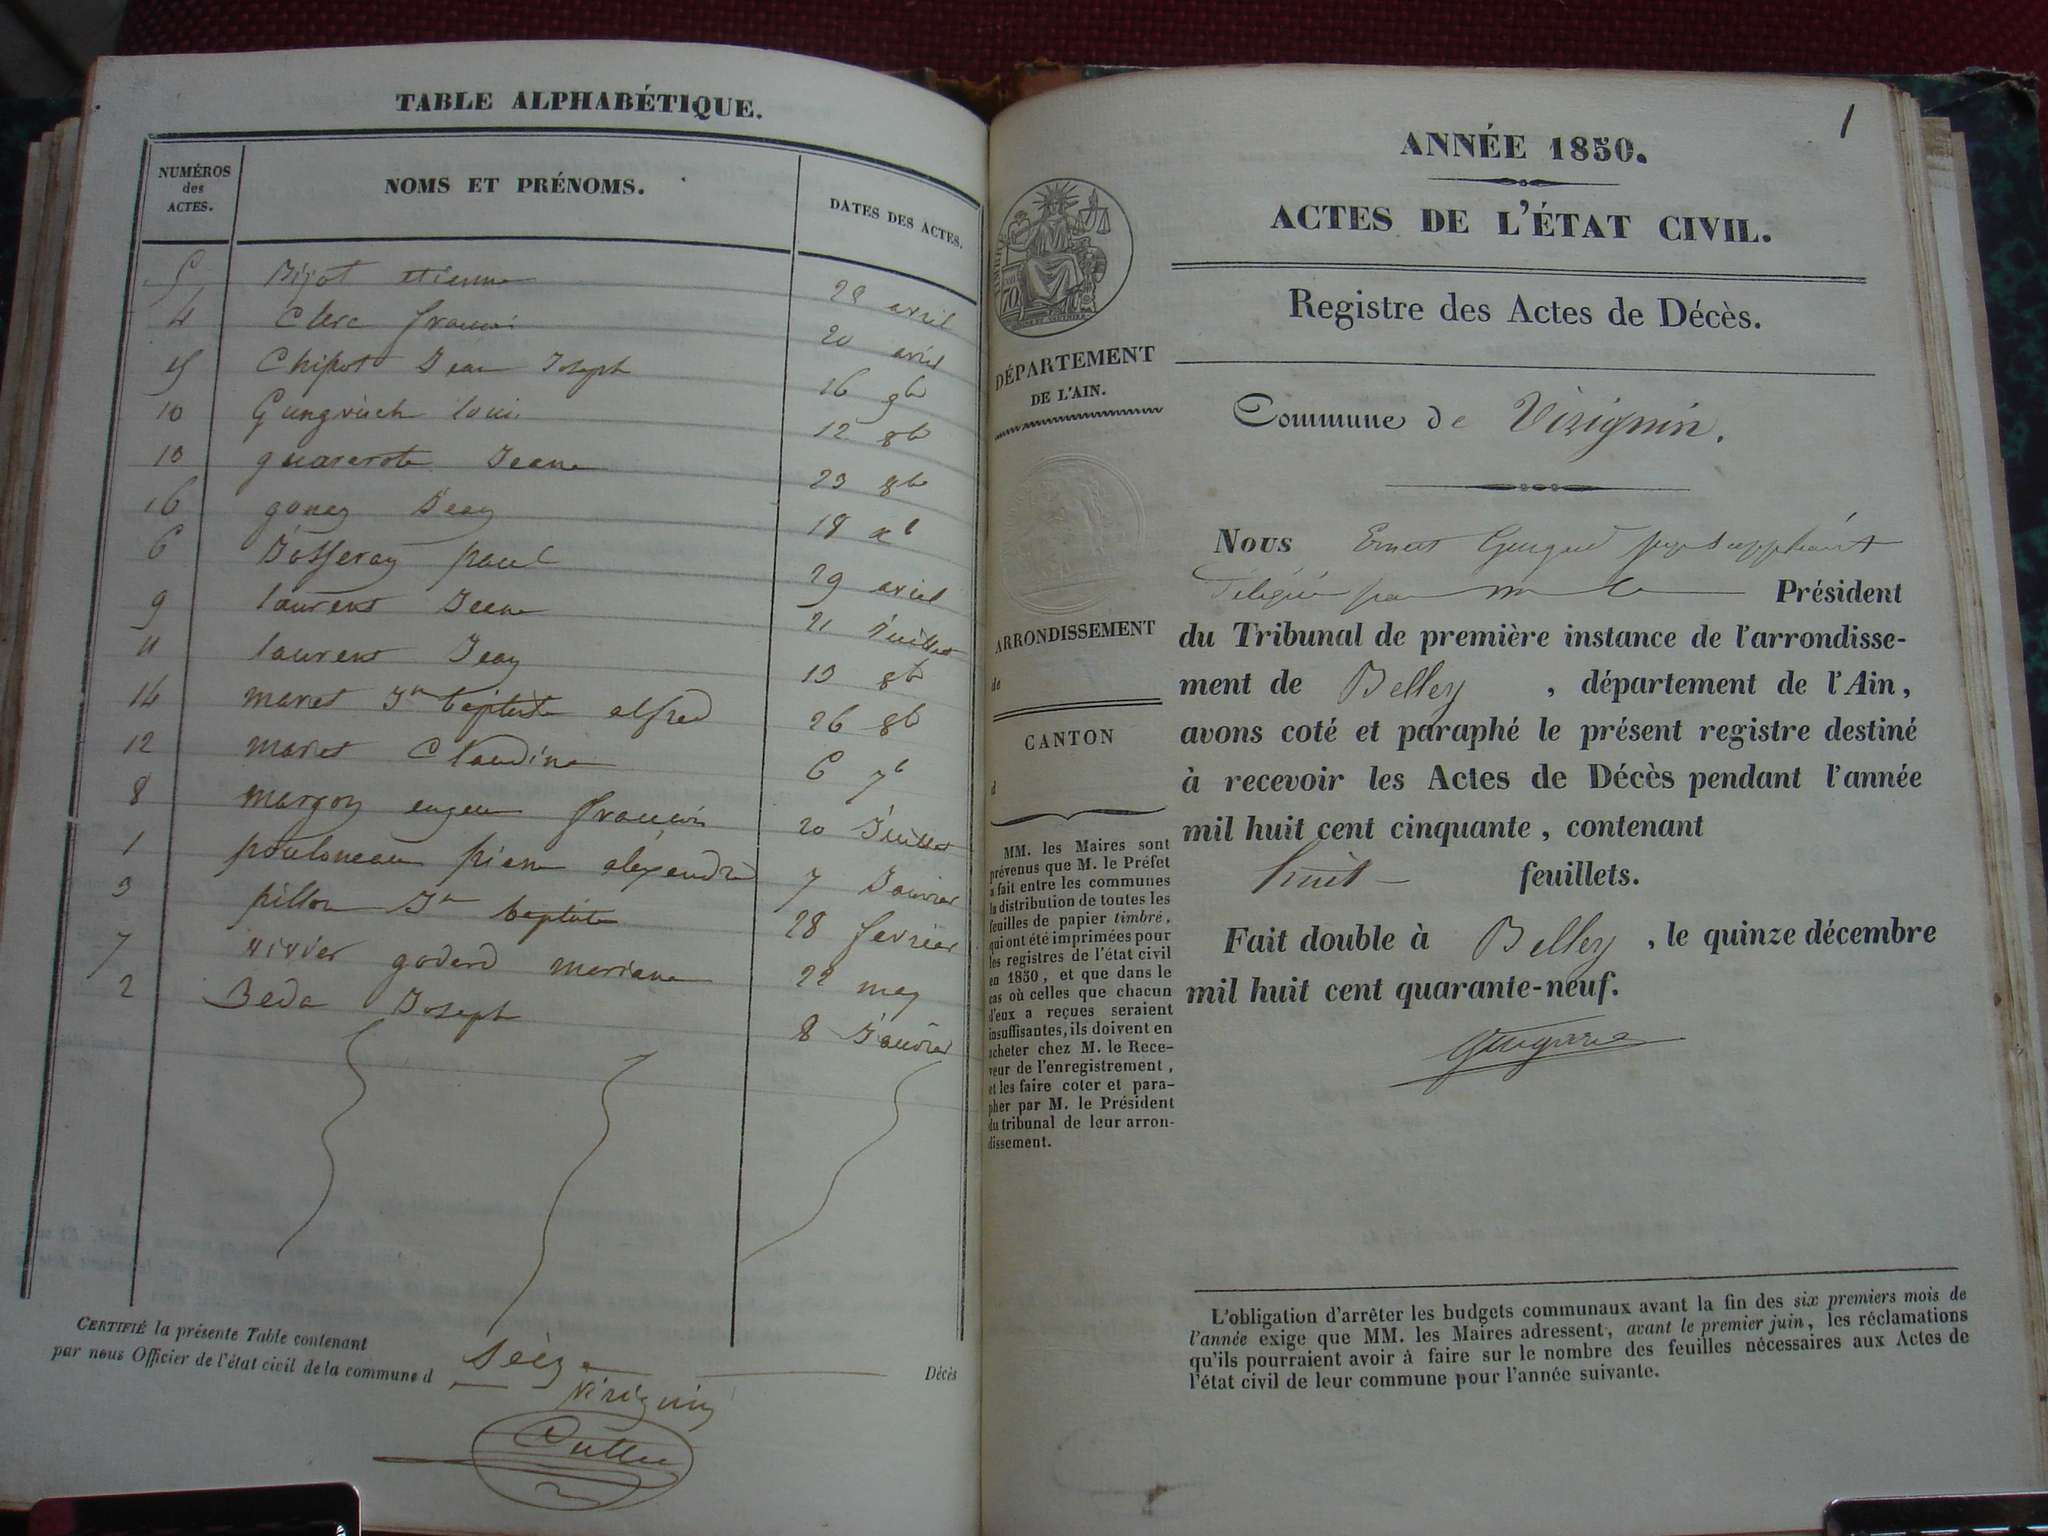 TABLE ALPHABÉTIQUE.
NUMÉROS
des
ACTES.
NOMS ET PRÉNOMS.
DATES DES ACTES.
5 étienne 28 avril
4 Clerc francoi 20 avril
15 Chipot Jean Joseph 16 9b
10 loui 12 8b
Jeane 23 8b
16 18 xb
6 paul 29 avril
9 laurent Jeane 21 Juillet
11 laurent Jean 13 8b
14 maret Jn baptiste alfred 26 8b
12 maret Claudine 6 7b
8 francoi 20 Juillet
1 pierre alexendre 7 Janvier
3 pillon Jn baptiste 28 fevrier
7 vivier godard mariane 22 may
2 Beda Joseph 8 Janvier
CERTIFIÉ la présente Table contenant seize Décès
par nous Officier de l'état civil de la commune d
virignin
1
ANNÉE 1850.
ACTES DE L'ÉTAT CIVIL.
Registre des Actes de Décès.
DÉPARTEMENT
DE L'AIN.
ARRONDISSEMENT
de
CANTON
d
MM. les Maires sont
prévenus que M. le Préfet
a fait entre les communes
la distribution de toutes les
feuilles de papier timbré,
qui ont été imprimées pour
les registres de l'état civil
en 1850, et que dans le
cas où celles que chacun
d'eux a reçues seraient
insuffisantes, ils doivent en
acheter chez M. le Rece-
veur de l'enregistrement,
et les faire coter et para-
pher par M. le Président
du tribunal de leur arron-
dissement.
Commune de Virignin.
Nous Ernest juge suppléant
délégué par m le Président
du Tribunal de première instance de l'arrondisse-
ment de Belley, département de l'Ain,
avons coté et paraphé le présent registre destiné
à recevoir les Actes de Décès pendant l'année
mil huit cent cinquante, contenant
huit feuillets.
Fait double à Belley, le quinze décembre
mil huit cent quarante-neuf.
L'obligation d'arrêter les budgets communaux avant la fin des six premiers mois de
l'année exige que MM. les Maires adressent, avant le premier juin, les réclamations
qu'ils pourraient avoir à faire sur le nombre des feuilles nécessaires aux Actes de
l'état civil de leur commune pour l'année suivante.